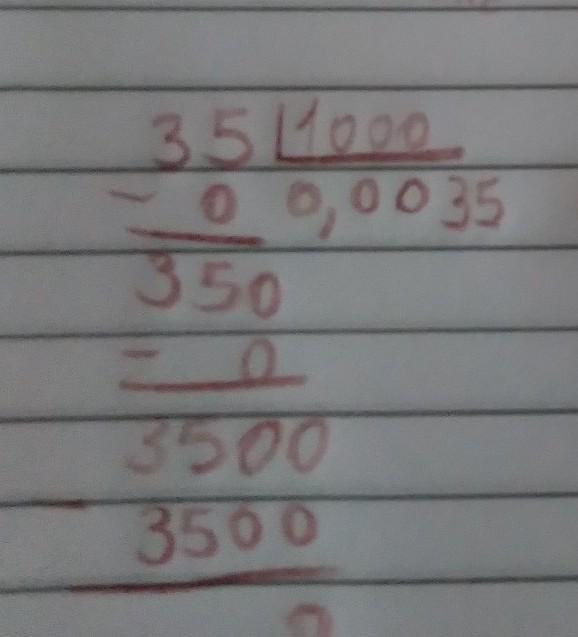 35 1000
- 0 0,0035
350
- 0
3500
- 3500
0